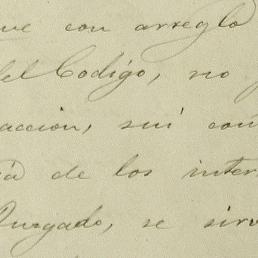 que con arreglo
del Codigo, no
acción, sin con
ia de los inter
Juzgado, se sirv